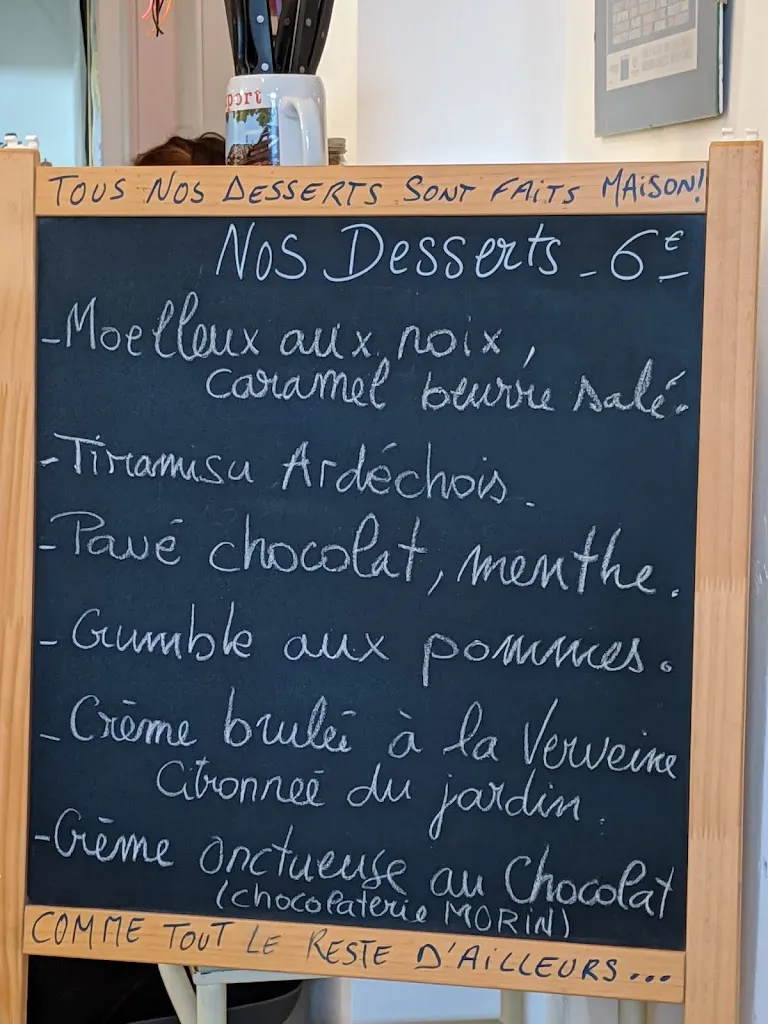 port
TOUS NOS DESSERTS SONT FAITS MAISON!
Nos Desserts - 6€
- Moelleux aux noix,
caramel beurre salé.
- Tiramisu Ardéchois.
- Pavé chocolat, menthe.
- Crumble aux pommes.
- Crème brulée à la Verveine
Citronneé du jardin.
- Crème onctueuse au Chocolat
(chocolaterie MORIN)
COMME TOUT LE RESTE D'AILLEURS...